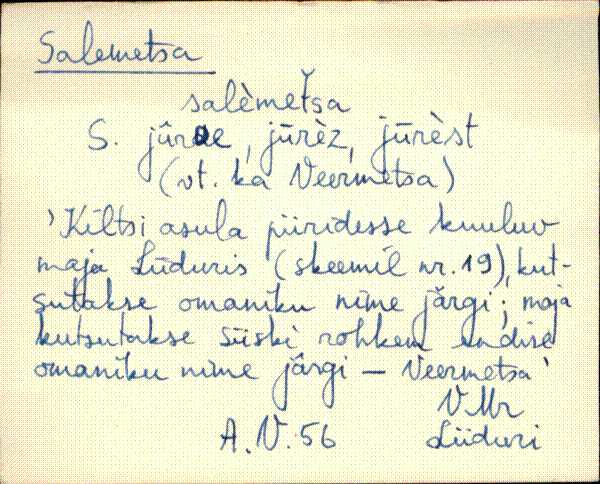 Salemetsa
salèmeťsa
S. jūrae, jūrèz, jūrèst
(vt. ka Veermetsa)
'Kiltsi asula piiridesse kuuluv
maja Liiduris (skeemil nr. 19), kut-
sutakse omaniku nime järgi; maja
kutsutakse siiski rohkem endise
omaniku nime järgi — Veermetsa'
VMr
A.V. 56 Liiduri